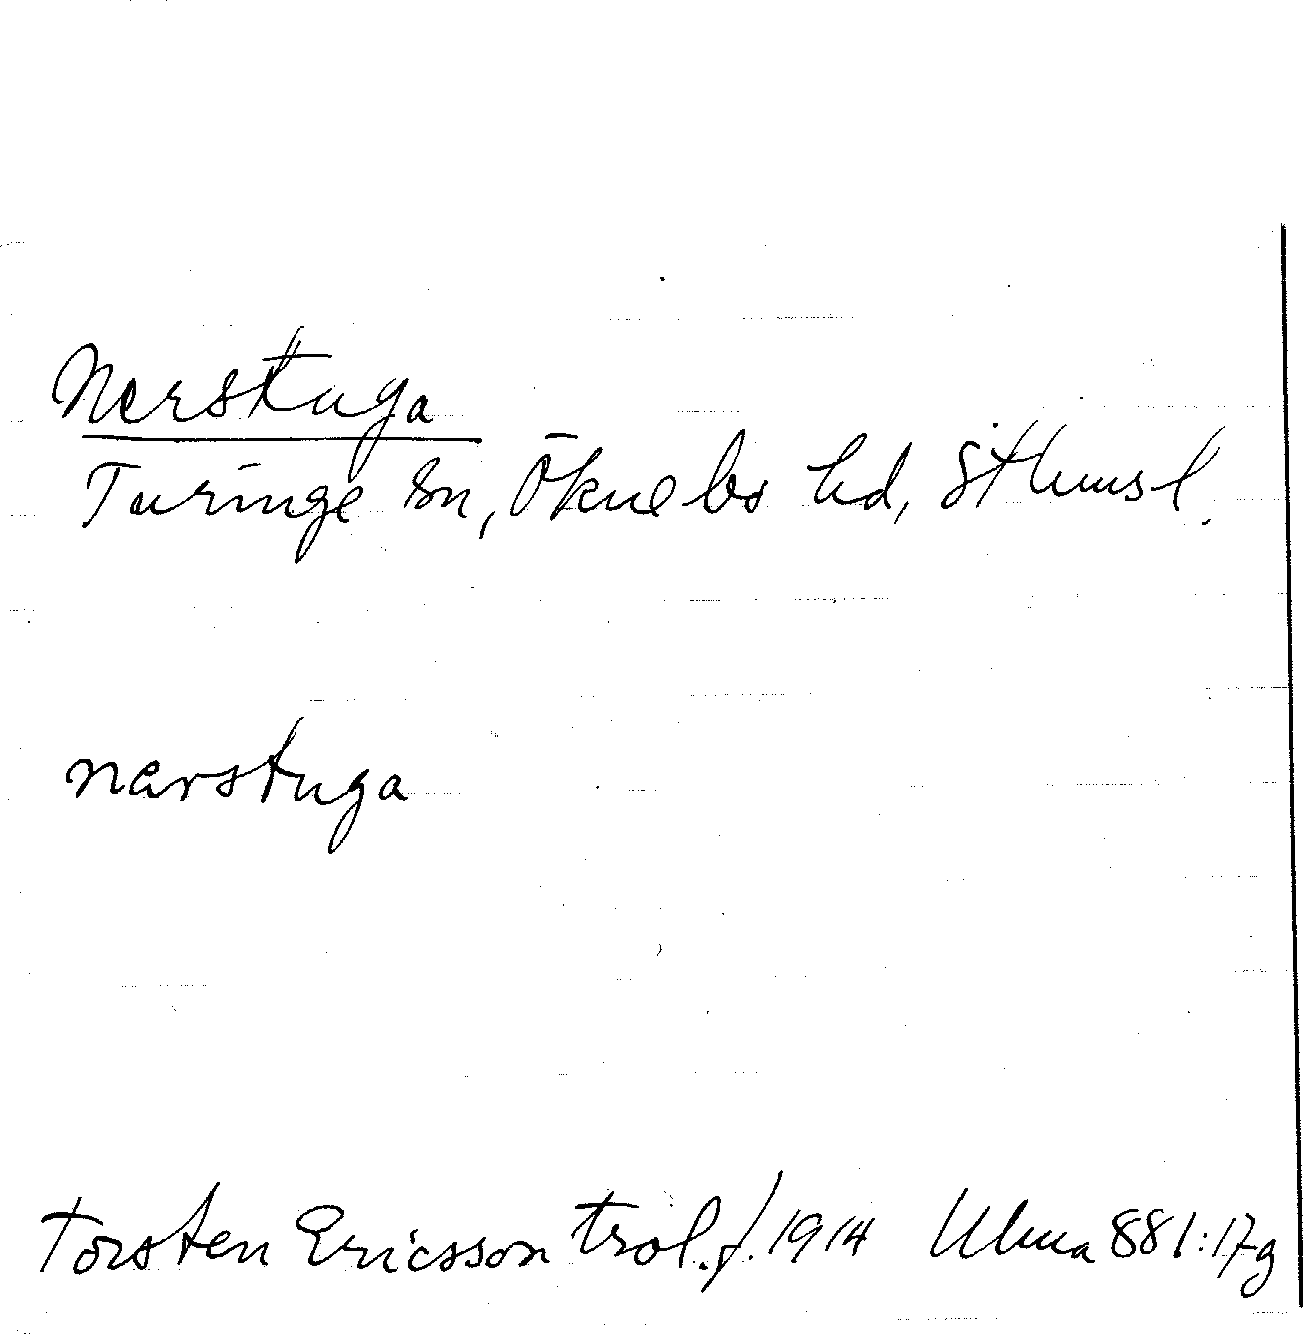 Nerstuga
Turinge sn, Öknebo hd, Sthmsl.
nerstuga
Torsten Ericsson trol. f. 1914 Ulma 881:17g